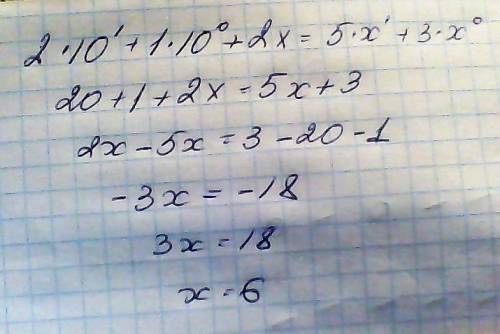 2·10¹+1·10⁰+2x=5·x¹+3·x⁰
20+1+2x=5x+3
2x-5x=3-20-1
-3x=-18
3x=18
x=6